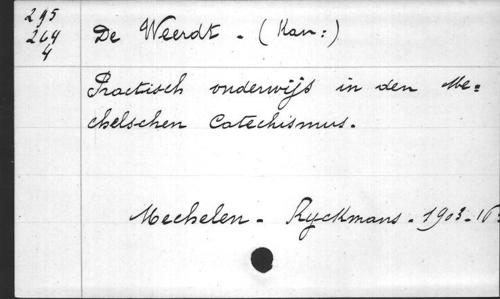 295
264
4
De Weerdt - (Kan:)
Practisch onderwijs in den Me=
chelschen Catechismus.
Mechelen - Ryckmans - 1903 - 16